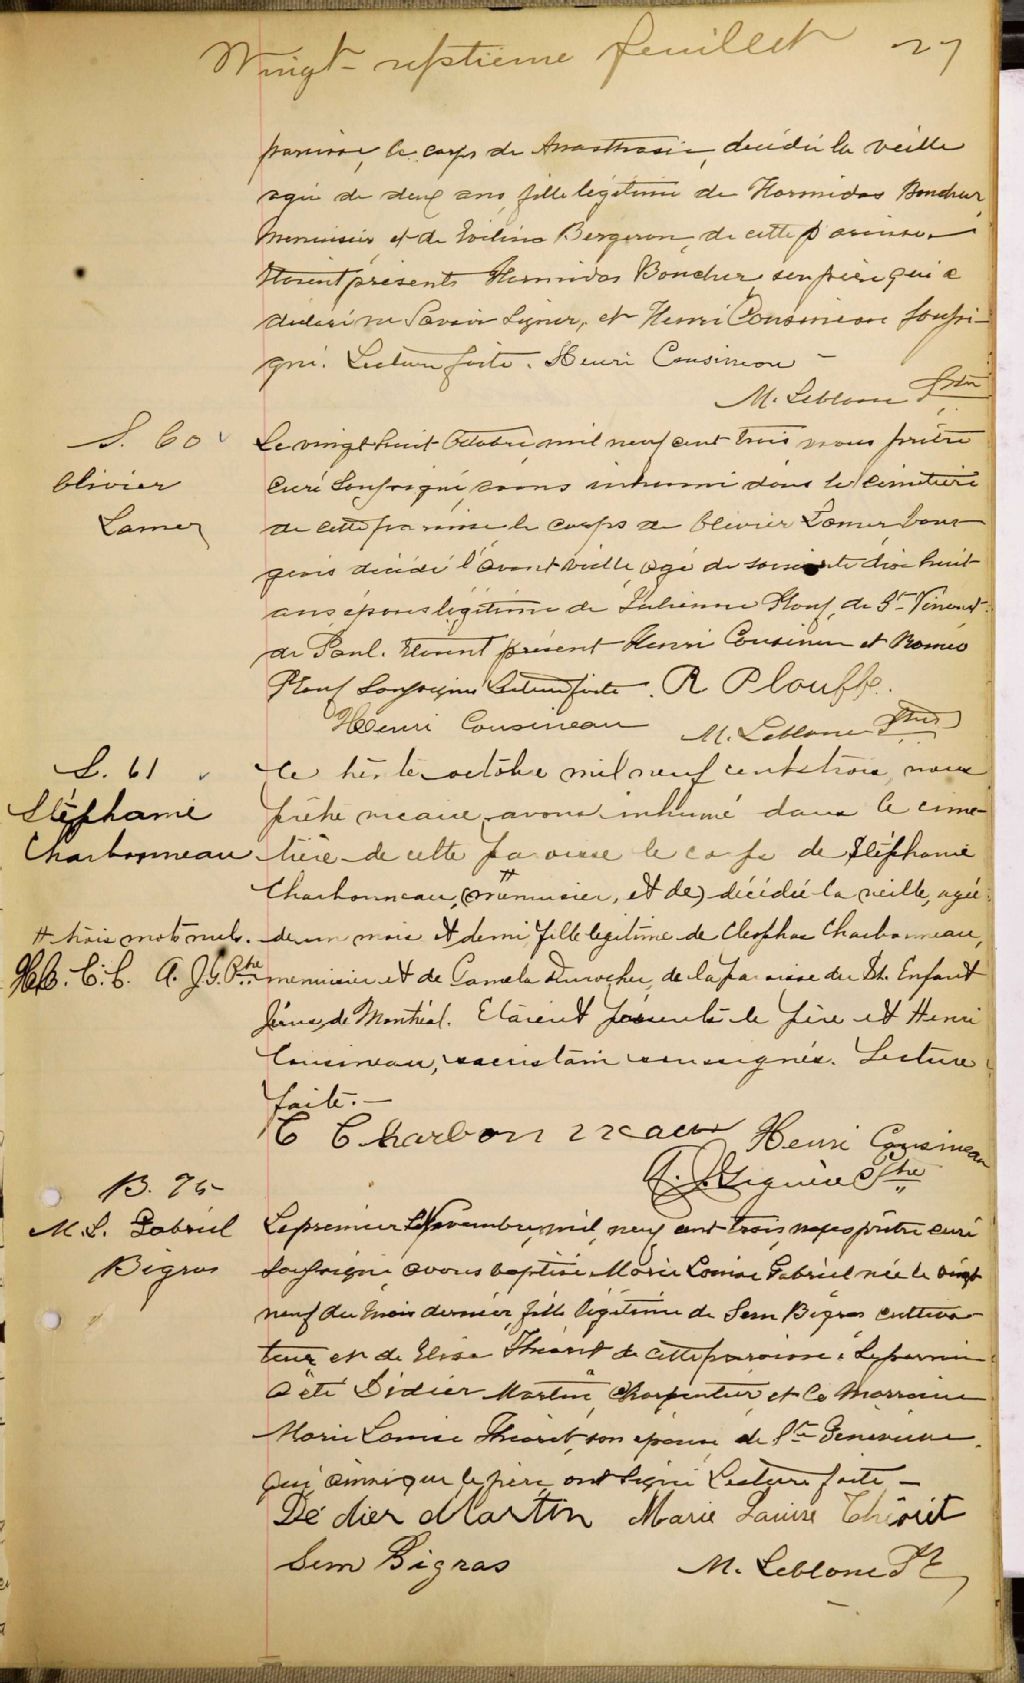 Vingt-septième feuillet 27
paroisse, le corps de Anasthasie, décédée la veille
agée de deux ans, fille légitime de Hormidas Boucher
menuisier et de Evélina Bergeron, de cette paroisse.
Etaient présents Hormidas Boucher, son père qui a
déclaré ne savoir signer, et Henri Cousineau soussi-
gné. Lecture faite. Henri Cousineau
M. Leblanc Ptre
S. 60
Olivier
Lamer
Le vingt huit Octobre mil neuf cent trois nous prêtre
curé soussigné, avons inhumé dans le cimetière
de cette paroisse le corps de Olivier Lamer bour-
geois décédé l'avant veille agé de soixante dix huit
ans époux légitime de Julienne Plouf, de St Vincent
de Paul. Etaient présent Henri Cousineau et Roméo
Plouf soussignés Lecture faite. R Plouffe.
Henri Cousineau M. Leblanc Ptre
S. 61
Stéphanie
Charbonneau
Le trente octobre mil neuf cent trois, nous
prêtre vicaire, avons inhumé dans le cime-
tière de cette paroisse le corps de Stéphanie
Charbonneau, (menuisier, et de) décédée la veille, agée
# trois mots nuls. de un mois et demi, fille légitime de Cléophas Charbonneau,
H.C. C.C. A. J.G. Ptre menuisier et de Paméla Durocher, de la paroisse du St. Enfant
Jésus, de Montréal. Etaient présents le père et Henri
Cousineau, sacristain soussignés. Lecture
faite.-
C Charbonneau Henri Cousineau
A. J. Giguère Ptre
B. 75
M. L. Gabriel
Bigras
Le premier Novembre, mil neuf cent trois, nous prêtre curé
soussigné avons baptisé Marie Louise Gabriel née le vingt
neuf du mois dernier, fille légitime de Sem Bigras cultiva-
teur et de Elisa Théorêt de cette paroisse. Le parrain
a été Didier Martin, charpentier, et la marraine
Marie Louise Théorêt, son épouse, de Ste Geneviève
qui ainsi que le père ont signé Lecture faite -
Dédier Martin Marie Louise Théorêt
Sem Bigras M. Leblanc Ptre